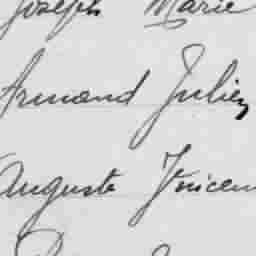 Joseph Marie
Armand Julien
Auguste Vincen